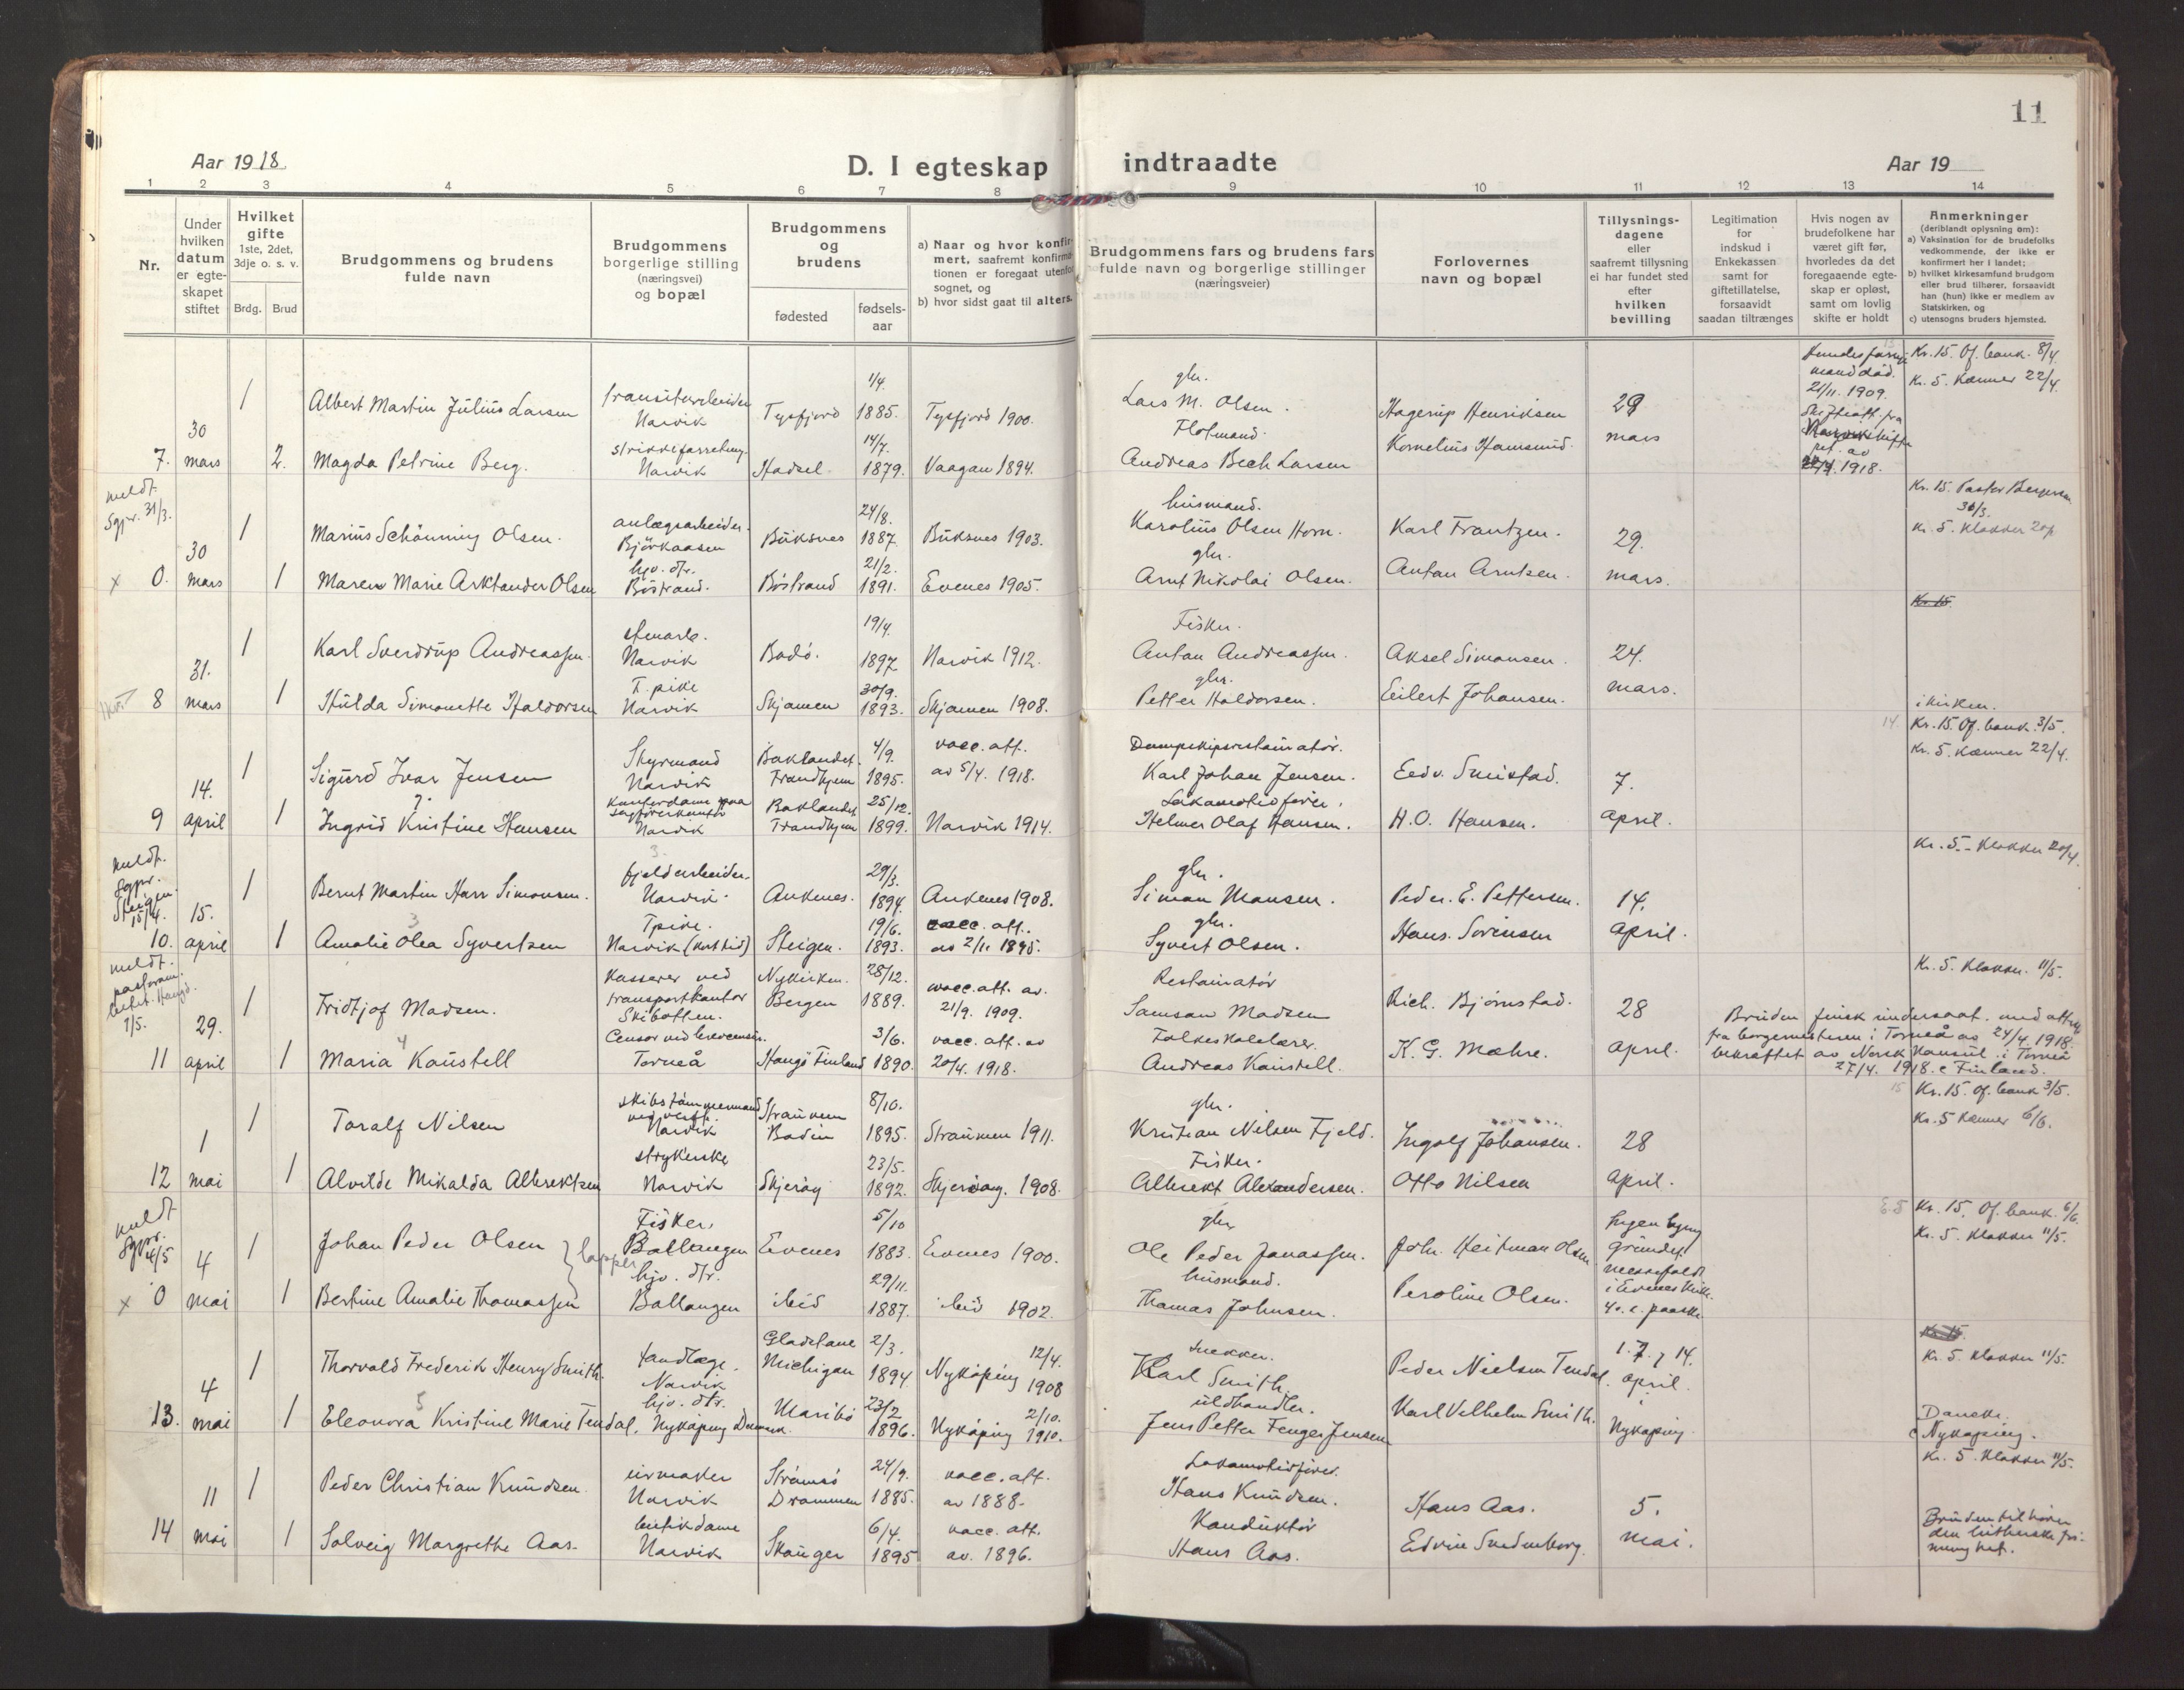 11
Aar 1918
D. I egteskap indtraadte
Aar 19
1 2 3 4 5 6 7 8 9 10 11 12 13 14
Nr.
Under hvilken datum er egteskapet stiftet
Hvilket gifte 1ste, 2det, 3dje o. s. v.
Brdg. Brud
Brudgommens og brudens fulde navn
Brudgommens borgerlige stilling (næringsvei) og bopæl
Brudgommens og brudens
fødested
fødsels-aar
a) Naar og hvor konfirmert, saafremt konfirmationen er foregaat utenfor sognet, og
b) hvor sidst gaat til alters.
Brudgommens fars og brudens fars fulde navn og borgerlige stillinger (næringsveier)
Forlovernes navn og bopæl
Tillysningsdagene eller saafremt tillysning ei har fundet sted efter hvilken bevilling
Legitimation for indskud i Enkekassen samt for giftetillatelse, forsaavidt saadan tiltrænges
Hvis nogen av brudefolkene har været gift før, hvorledes da det foregaaende egteskap er opløst, samt om lovlig skifte er holdt
Anmerkninger (deriblandt oplysning om):
a) Vaksination for de brudefolks vedkommende, der ikke er konfirmert her i landet;
b) hvilket kirkesamfund brudgom eller brud tilhører, forsaavidt han (hun) ikke er medlem av Statskirken, og
c) utensogns bruders hjemsted.
1 Albert Martin Julius Larsen transitarbeider Narvik Tysfjord 1/4. 1885. Tysfjord 1900. glr. Lars M. Olsen. Hagerup Henriksen 29 mars
7. 30 mars 2. Magda Petrine Berg. Narvik Hadsel 14/7. 1879. Vaagan 1894. Flotmand. Andreas Bech Larsen Kornelius Hamsund.
mand død. 21/11. 1909. 1918.
Kr. 15. Of. bank. 8/4.
Kr. 5. Kæmner 22/4.
meldt. Sgpr. 31/3.
1 Marius Schönning Olsen. anlægsarbeider. Björkaasen Buksnes 24/8. 1887. Buksnes 1903. husmand. Karolius Olsen Horn. Karl Frantzen. 29. mars.
x 0. 30 mars 1 Maren Marie Arktander Olsen hjv. dtr. Böstrand. Böstrand 21/2. 1891. Evenes 1905. glr. Arnt Nikolai Olsen. Anton Arntsen.
Kr. 15. Pastor Bergersen 30/3.
Kr. 5. Klokker
Kr. 15
1 Karl Sverdrup Andreassen. Narvik Bodö. 19/4. 1897 Narvik 1912. Fisker. Anton Andreassen. Aksel Simonsen. 24. mars.
8 31. mars 1 Hulda Simonette Haldorsen T. pike Narvik Skjomen 30/9. 1893. Skjomen 1908. glr. Petter Haldorsen. Eilert Johansen. i kirken.
14. Kr. 15. Of. bank. 3/5.
Kr. 5. Kæmner 22/4.
1 Sigurd Ivar Jensen Styrmand Narvik Baklandet. Trondhjem 4/9. 1895. vacc. att. av 5/4. 1918. Dampskipsrestauratör. Karl Johan Jensen. Edv. Smistad. 7. April.
9 14. april 1 Ingrid Kristine Hansen Kontordame paa sagförerkontor Narvik Baklandet Trondhjem 25/12. 1899. Narvik 1914. Lokomotivförer. Helmer Olaf Hansen. H.O. Hansen.
meldt. Sgpr. Steigen. 15/4.
Kr. 5. - Klokker 20/4.
1 Bernt Martin Harr Simonsen. fjeldarbeider. Narvik. Ankenes. 29/3. 1894. Ankenes 1908. glr. Simon Monsen. Peder. E. Pettersen. 14. April.
10. 15. april 1 Amalie Olea Syvertsen Tpike. Narvik (kort tid) Steigen. 19/6. 1893. vacc. att. av 2/11. 1895. glr. Syvert Olsen. Hans. Sörensen
meldt. 1/5.
Kr. 5. Klokker. 11/5.
1 Fridtjof Madsen. Kasserer ved transportkontor Skibotten. Nykirken. Bergen 28/12. 1889. vacc. att. av. 21/9. 1909. Restauratör Samson Madsen Rich. Björnstad. 28 April.
11 29. april 1 Maria Kaustell Censor ved Torneå Hangö Finland 3/6. 1890. vacc. att. av 20/4. 1918. Folkeskolelærer. Andreas Kaustell. K. G. Mæhre.
Bruden finsk undersaat. med attest fra borgermesteren i Torneå av 24/4. 1918. bekræftet av Norsk Konsul i Torneå 27/4. 1918. c Finland.
15 Kr. 15. Of. bank 3/5.
Kr. 5 Kæmner 6/6.
1 Toralf Nilsen skibstömmermand ved verft. Narvik Straumen Bodin 8/10. 1895. Straumen 1911. glr. Kristian Nilsen Fjeld. Ingolf Johansen. 28 April.
12 1 mai 1 Alvilde Mikalda Albrektsen strykerske Narvik Skjeröy 23/5. 1892. Skjeröy. 1908. Fisker. Albrekt Alexandersen. Otto Nilsen
meldt Sgpr. 4/5
Kr. 15. Of. bank. 6/6.
Kr. 5. Klokker 11/5.
1 Johan Peder Olsen } lapper Fisker, Ballangen Evenes 5/10 1883. Evenes 1900. glr. Ole Peder Jonassen. Joh. Heitman Olsen Ingen lysning Grundet i Evenes kirke 4. e. paaske.
x 0 4 mai 1 Bertine Amalie Thomassen hjv. dtr. Ballangen ibid 29/11. 1887. ibid 1902. husmand. Thomas Johnsen. Peroline Olsen.
Kr. 5. Klokker 11/5.
1 Thorvald Frederik Henry Smith. tandlæge. Narvik Gladstone Michigan 2/3. 1894 12/4. Nyköping 1908 Snekker. Karl Smith. Peder Nielsen Tendal. 1. 7. 14. April. i Nyköping
13. 4 mai 1 Eleonora Kristine Marie Tendal. hjv. dtr. Nyköping Danmark. Maribo 23/2 1896. 2/10. Nyköping 1910. uldhandler. Jens Petter Fenger Jensen Karl Vilhelm Smith.
Danske. c Nyköping.
Kr. 5. Klokker 11/5.
1 Peder Christian Knudsen. urmaker Narvik Strömsö Drammen 24/9. 1885. vacc. att. av 1888. Lokomotivförer. Hans Knudsen. Hans Aas. 5. mai.
14 11 mai 1 Solveig Margrethe Aas. butikdame Narvik Skauger 6/4. 1895 vacc. att. av. 1896. Konduktör Hans Aas. Edvin Sundenborg.
Bruden tilhörer den lutherske frimenighet.